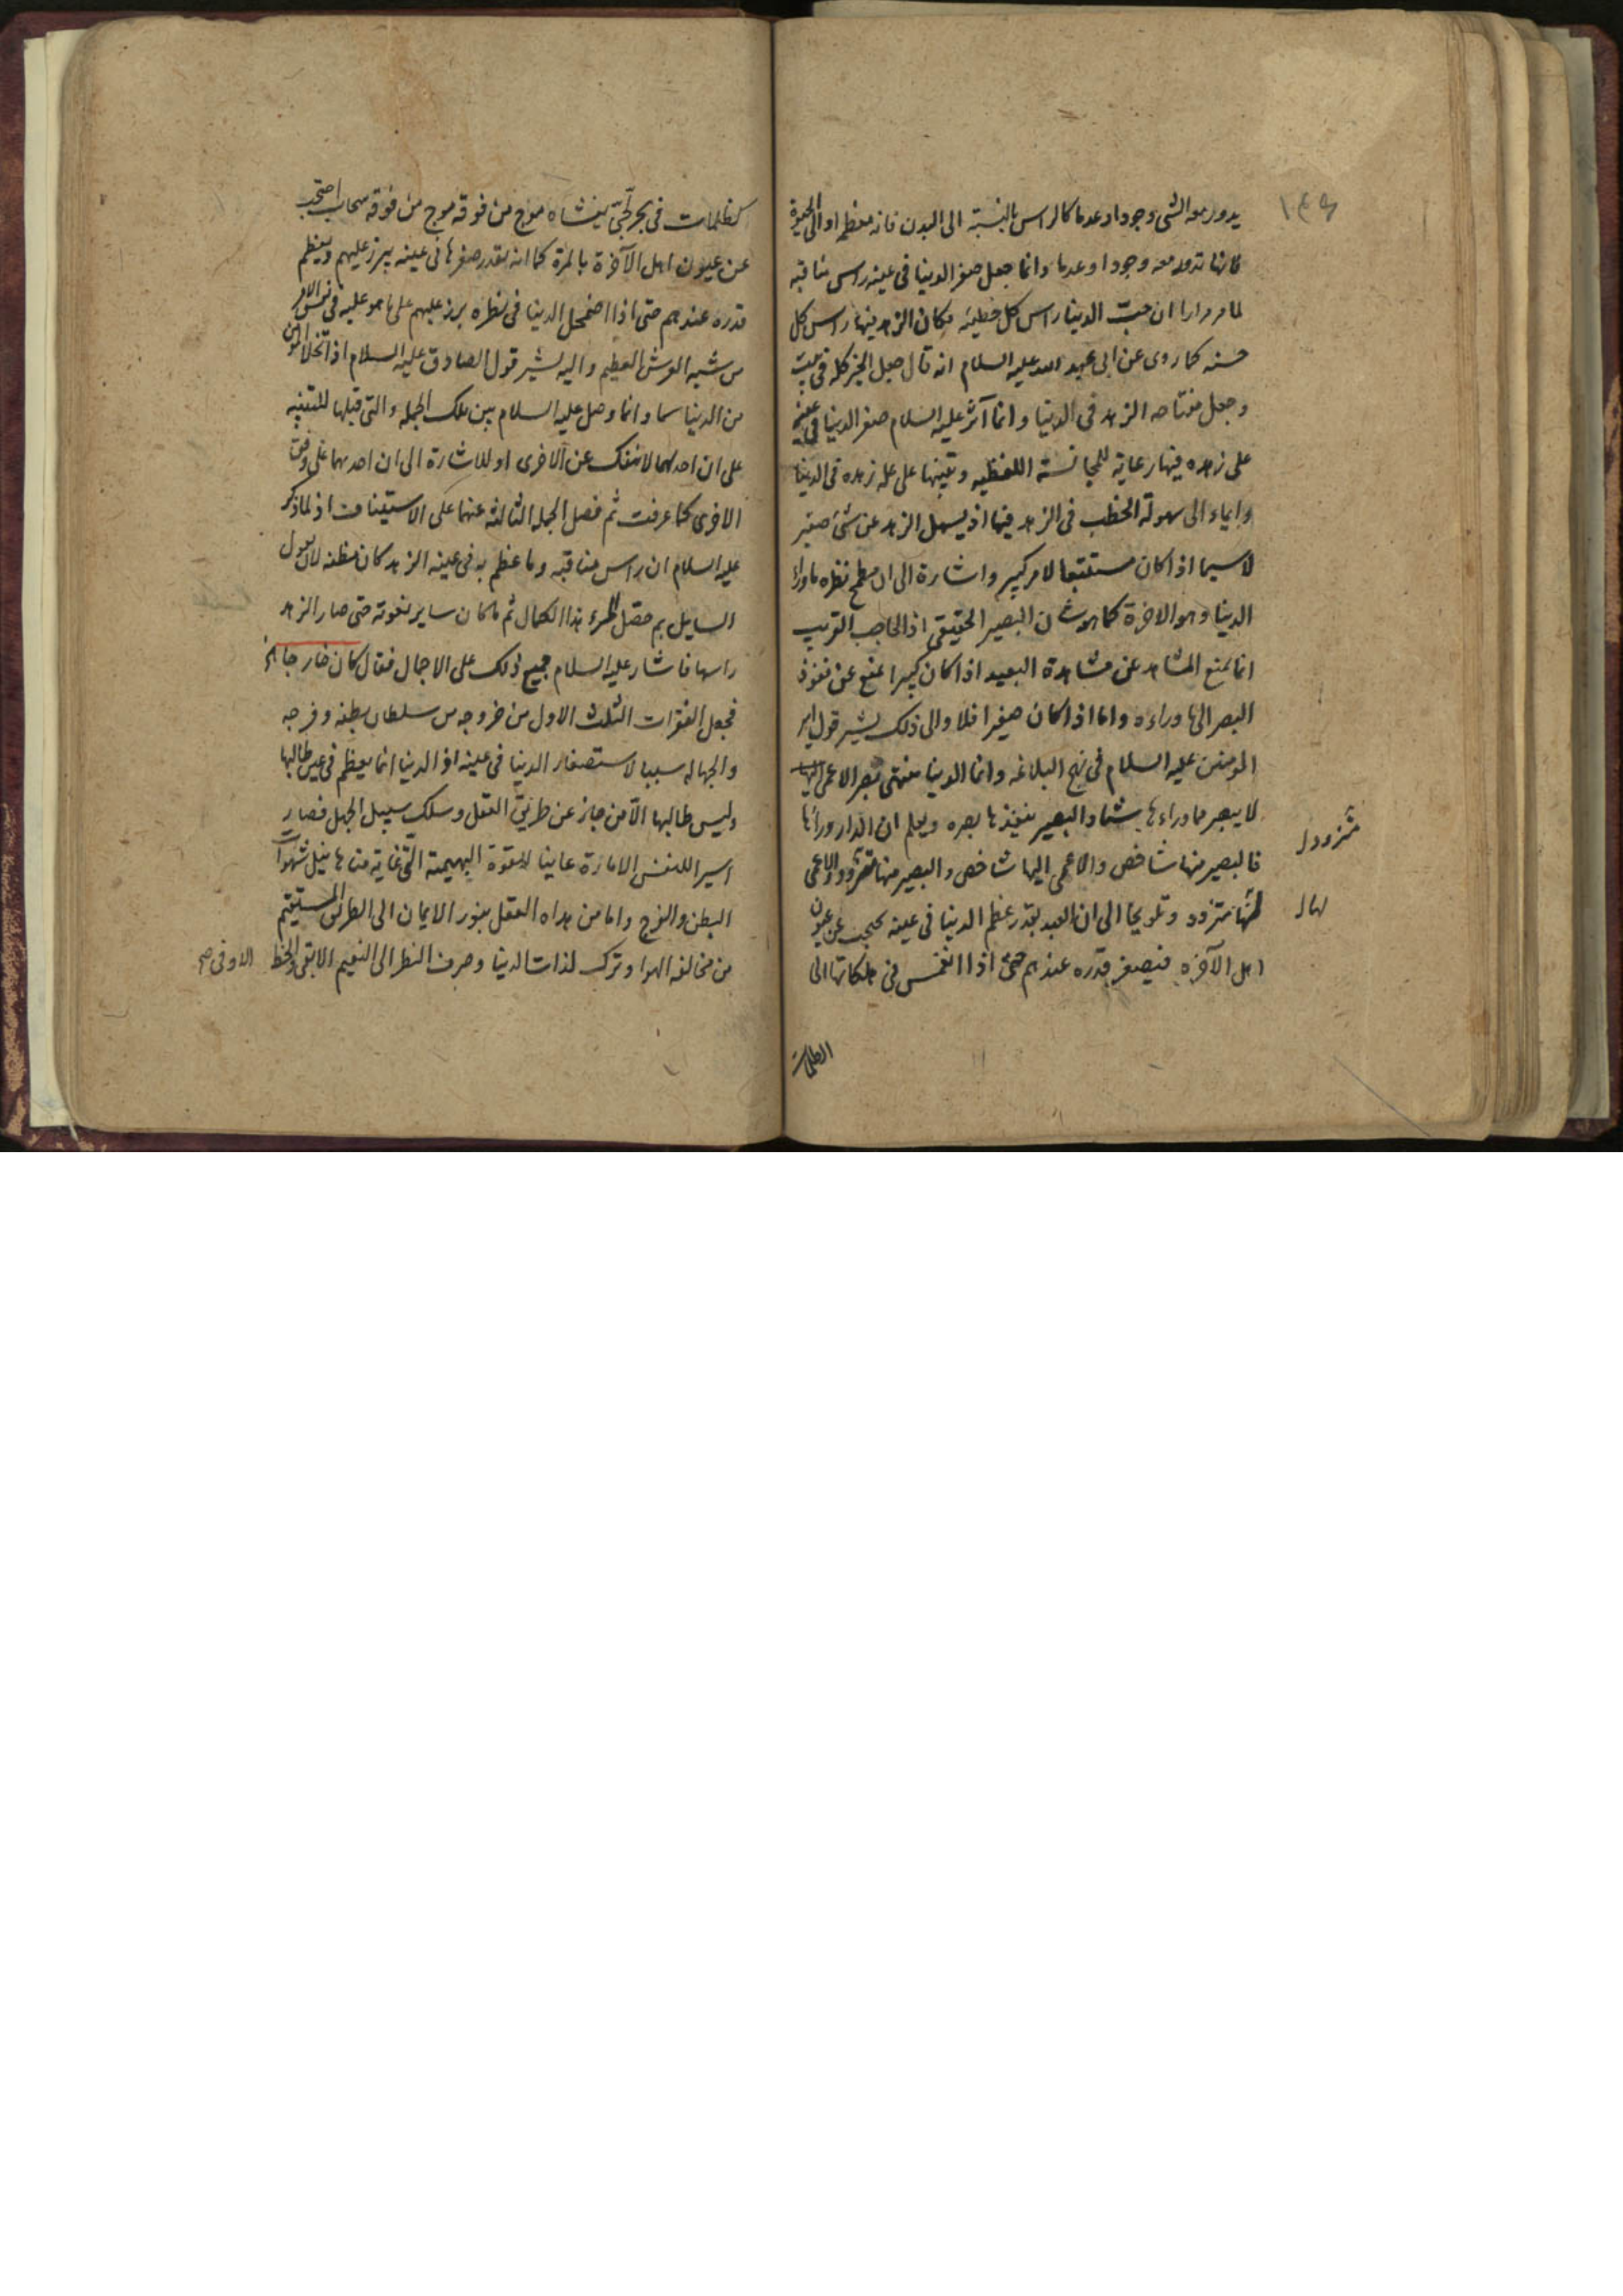 ١٤٩
يدور معه الشى وجودا وعدما كالراس بالنسبة الى البدن فانه معظمه او الى الحيوة
فانها تدور معه وجودا وعدما وانما جعل صغر الدنيا فى عينه راس مناقبه
لما مر مرارا ان حبّ الدنيا راس كل خطيئه فكان الزهد فيها راس كل
حسنه كما روى عن ابى عبد الله عليه السلام انه قال جعل الخير كله فى بيت
وجعل مفتاحه الزهد فى الدنيا وانما آثر عليه السلام صغر الدنيا فى عينه
على زهده فيها رعاية للمجانسة اللفظيه وتنبيها على علة زهده فى الدنيا
وايماء الى سهولة الخطب فى الزهد فيها اذ يسهل الزهد عن شئ صغير
لاسيما اذا كان مستتبعا لامر كبير واشارة الى ان مطمح نظره ماوراء
الدنيا وهو الاخرة كما هو شان البصير الحقيقى اذ الحاجب القريب
انما يمنع المشاهد عن مشاهدة البعيد اذا كان كبيرا يمنع عن نفوذ
البصر الى ماوراءه واما اذا كان صغيرا فلا والى ذلك يشير قول امير
المومنين عليه السلام فى نهج البلاغه وانما الدنيا منتهى بصر الاعمى
لا يبصر مما وراءها شيئا والبصير ينفذها بصره ويعلم ان الدار وراءها
فالبصير منها شاخص والاعمى اليها شاخص والبصير منها متزود والاعمى
لها متزود وتلويحا الى ان العبد بقدر عظم الدنيا فى عينه يحجب عن عيون
اهل الآخره فيصغر قدره عندهم حتى اذا انغمس فى هلكاتها الى
متزود
لها
الظلمات
كظلمات فى بحر لجّىّ يغشاه موج من فوقه موج من فوقه سحاب احتجب
عن عيون اهل الآخرة بالمرة كما انه بقدر صغرها فى عينه يبرز عليهم ويعظم
قدره عندهم حتى اذا اضمحل الدنيا فى نظره برز عليهم على ما هو عليه فى نفس الامر
واليه يشير قول الصادق عليه السلام اذا تخلا المؤمن
من الدنيا سما وانما وصل عليه السلام بين تلك الجمله والتى قبلها للتنبيه
على ان احدهما لا ينفك عن الاخرى او للاشارة الى ان احدهما على وفق
الاخرى كما عرفت ثم فصل الجملة الثالثه عنهما على الاستيناف اذ لما ذكر
عليه السلام ان راس مناقبه وما عظم به فى عينه الزهد كان مظنه لان يقول
السايل بم حصل للمرء هذا الكمال ثم ما كان ساير نعوته حتى صار الزهد
راسها فاشار عليه السلام جميع ذلك على الاجمال فقال كان خارجا الخ
فجعل الفقرات الثلث الاول من خروجه من سلطان بطنه وفرجه
والجهاله سببا لاستصغار الدنيا فى عينه اذ الدنيا انما يعظم فى عين طالبها
وليس طالبها الّا من جاز عن طريق العقل وسلك سبيل الجهل فصار
اسيرا للنفس الامارة عابدا لقوة البهيمية التى غاية مناها نيل شهوات
البطن والفرج واما من هداه العقل بنور الايمان الى الطريق المستقيم
من مخالفه الهوا وترك لذات الدنيا وصرف النظر الى النعيم الابقى والحظ
الاوفى صح